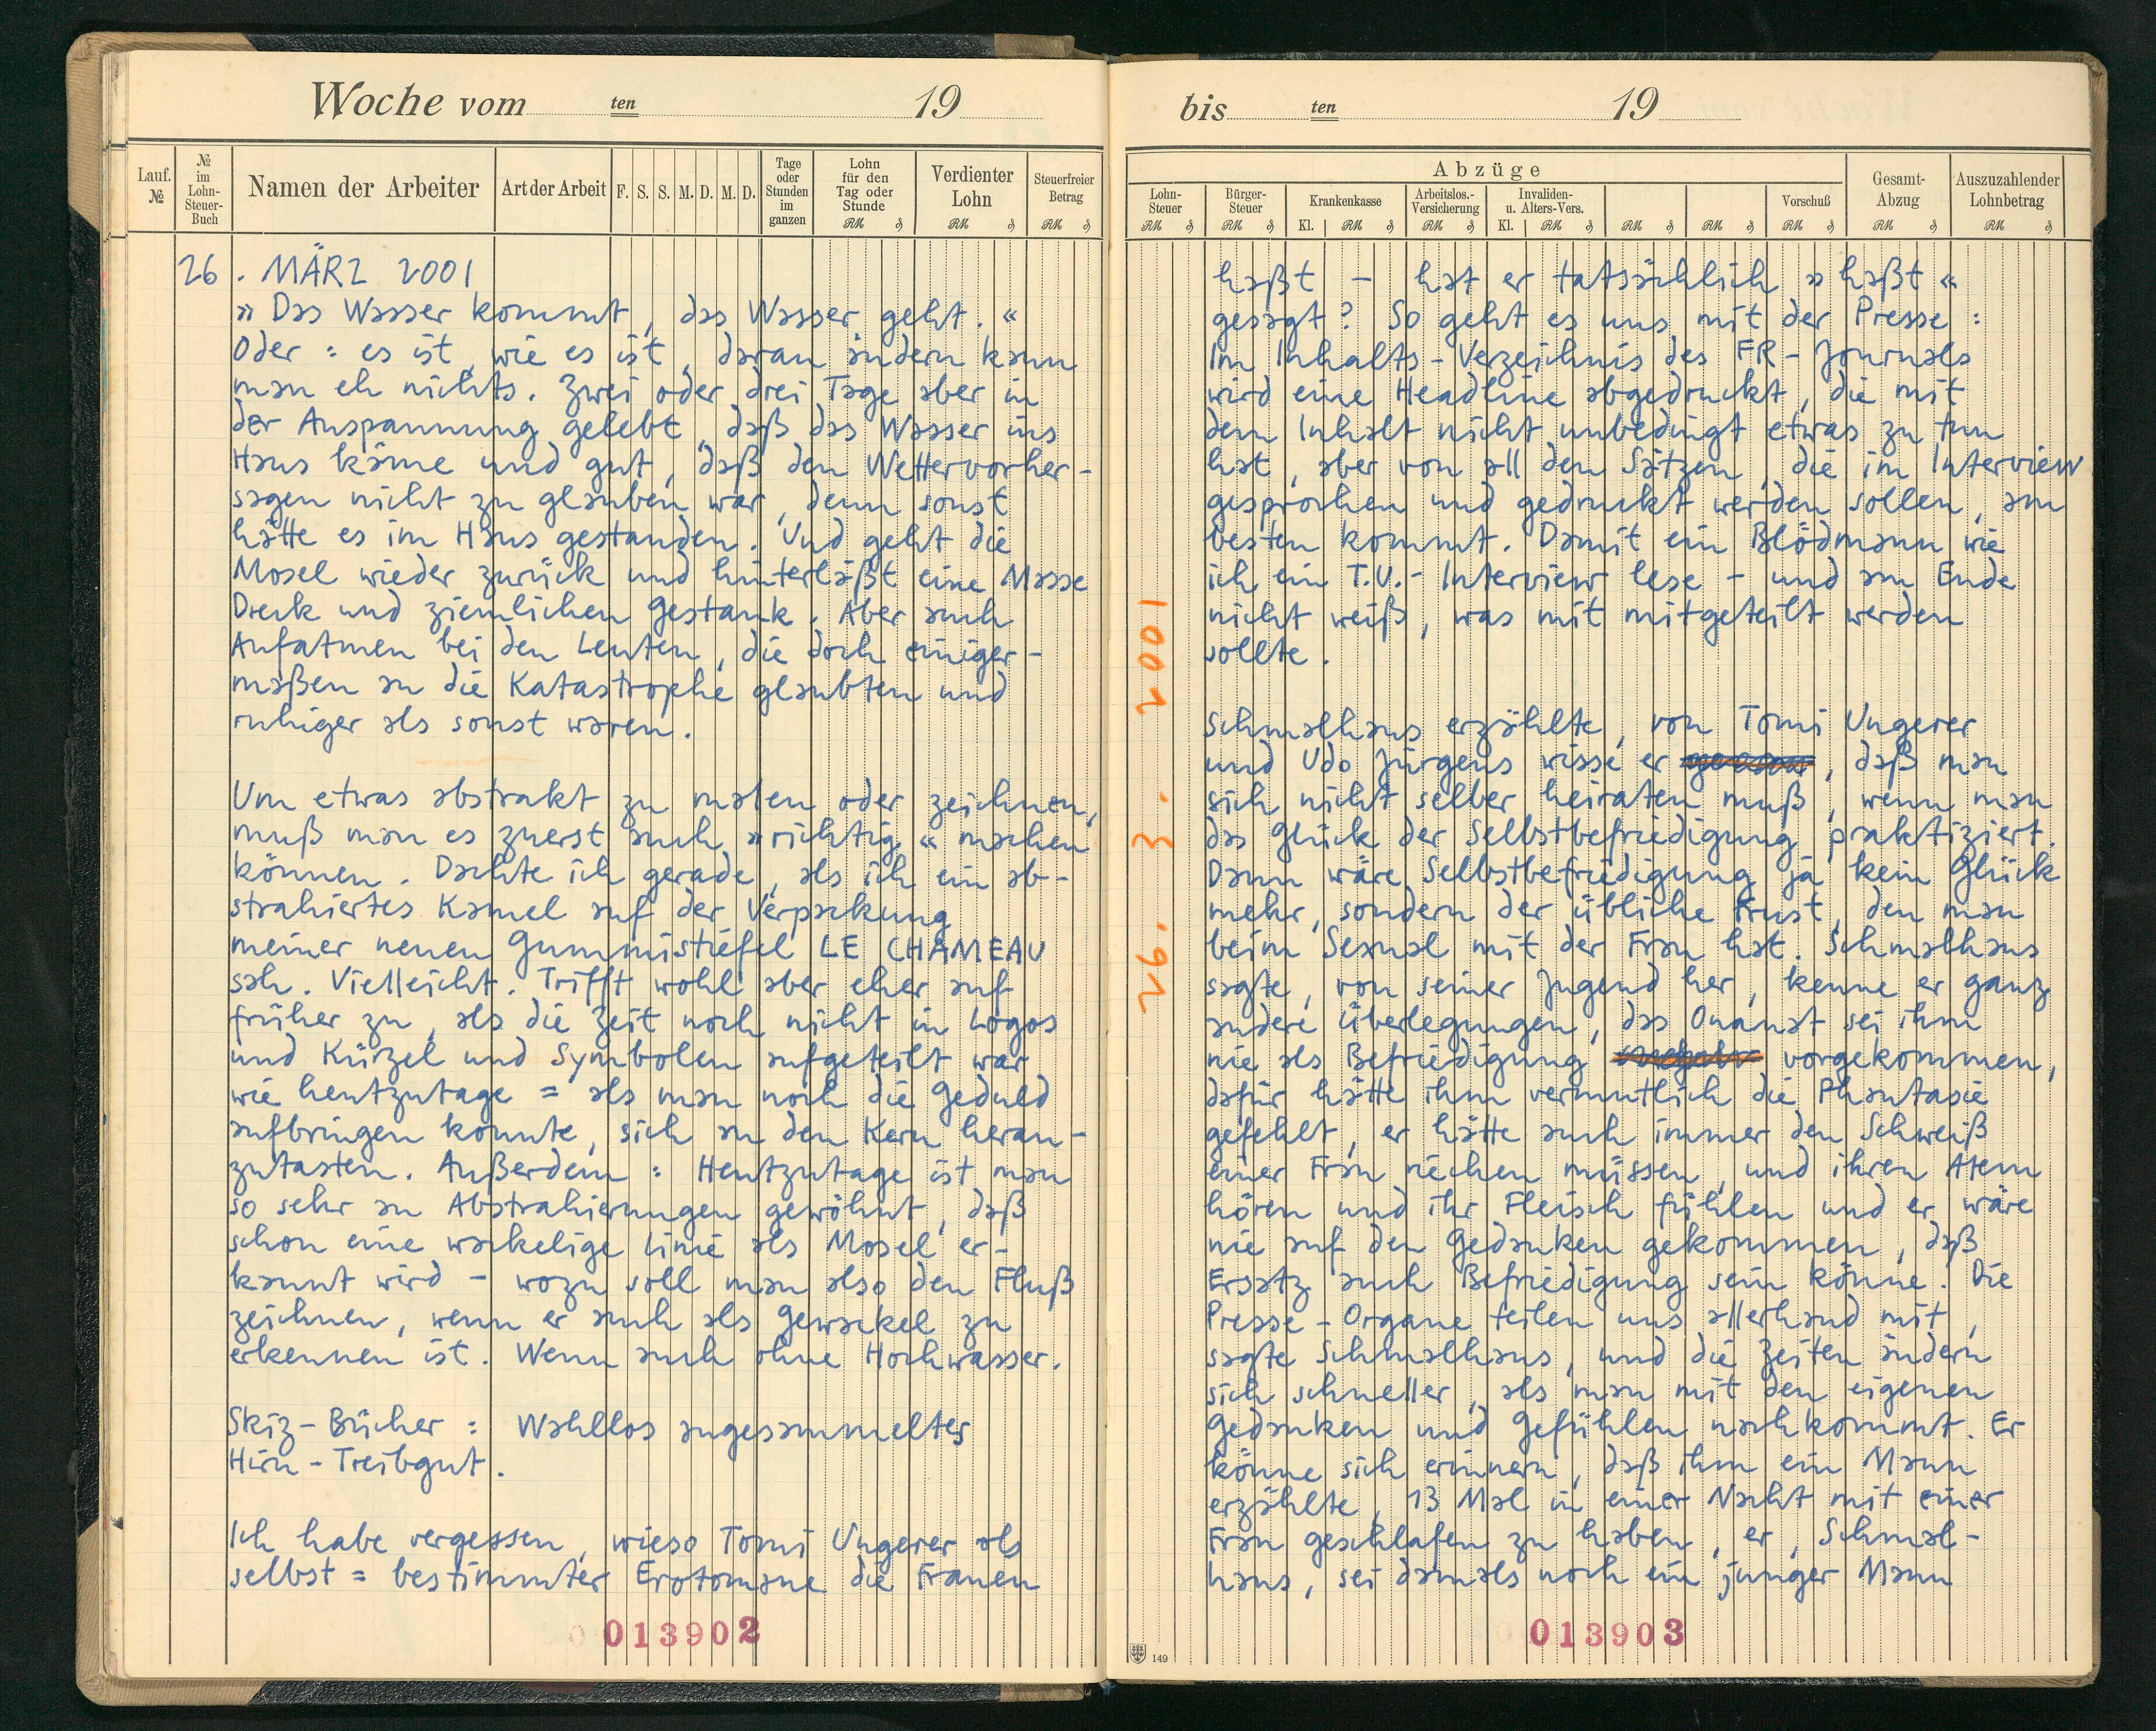 Woche vom ten 19
Lauf. №
№ im Lohn-Steuer-Buch
Namen der Arbeiter
Art der Arbeit
F. S. S. M. D. M. D.
Tage oder Stunden im ganzen
Lohn für den Tag oder Stunde
RM ₰
Verdienter Lohn
RM ₰
Steuerfreier Betrag
RM ₰
26. MÄRZ 2001
» Das Wasser kommt, das Wasser geht. «
Oder : es ist, wie es ist, daran ändern kann
man eh nichts. Zwei oder drei Tage aber in
der Anspannung gelebt, daß das Wasser ins
Haus käme und gut, daß den Wettervorher-
sagen nicht zu glauben war, denn sonst
hätte es im Haus gestanden. Und geht die
Mosel wieder zurück und hinterläßt eine Masse
Dreck und ziemlichen Gestank. Aber auch
Aufatmen bei den Leuten, die doch einiger-
maßen an die Katastrophe glaubten und
ruhiger als sonst waren.
Um etwas abstrakt zu malen oder zeichnen,
muß man es zuerst auch » richtig « machen
können. Dachte ich gerade, als ich ein ab-
strahiertes Kamel auf der Verpackung
meiner neuen Gummistiefel LE CHAMEAU
sah. Vielleicht. Trifft wohl aber eher auf
früher zu, als die Zeit noch nicht in Logos
und Kürzel und Symbolen aufgeteilt war
wie heutzutage = als man noch die Geduld
aufbringen konnte, sich an den Kern heran-
zutasten. Außerdem : Heutzutage ist man
so sehr an Abstrahierungen gewöhnt, daß
schon eine wackelige Linie als Mosel er-
kannt wird - wozu soll man also den Fluß
zeichnen, wenn er auch als Gewackel zu
erkennen ist. Wenn auch ohne Hochwasser.
Skiz-Bücher : Wahllos angesammeltes
Hirn-Treibgut.
Ich habe vergessen, wieso Tomi Ungerer als
selbst = bestimmter Erotomane die Frauen
013902
bis ten 19
Abzüge
Lohn-Steuer
RM ₰
Bürger-Steuer
RM ₰
Krankenkasse
Kl. RM ₰
Arbeitslos.-Versicherung
RM ₰
Invaliden- u. Alters-Vers.
Kl. RM ₰
RM ₰
RM ₰
Vorschuß
RM ₰
Gesamt-Abzug
RM ₰
Auszuzahlender Lohnbetrag
RM ₰
26. 3. 2001
haßt - hat er tatsächlich » haßt «
gesagt? So geht es uns mit der Presse :
Im Inhalts-Verzeichnis des FR-Journals
wird eine Headline abgedruckt, die mit
dem Inhalt nicht unbedingt etwas zu tun
hat, aber von all den Sätzen, die im Interview
gesprochen und gedruckt werden sollen, am
besten kommt. Damit ein Blödmann wie
ich ein T.U.- Interview lese - und am Ende
nicht weiß, was mit mitgeteilt werden
sollte.
Schmalhaus erzählte, von Tomi Ungerer
und Udo Jürgens wisse er , daß man
sich nicht selber heiraten muß, wenn man
das Glück der Selbstbefriedigung praktiziert.
Dann wäre Selbstbefriedigung ja kein Glück
mehr, sondern der übliche Frust, den man
beim Sexual mit der Frau hat. Schmalhaus
sagte, von seiner Jugend her, kenne er ganz
andere Überlegungen, das Onanat sei ihm
nie als Befriedigung vorgekommen,
dafür hätte ihm vermutlich die Phantasie
gefehlt, er hätte auch immer den Schweiß
einer Frau riechen müssen, und ihren Atem
hören und ihr Fleisch fühlen und er wäre
nie auf den Gedanken gekommen, daß
Ersatz auch Befriedigung sein könne. Die
Presse-Organe teilen uns allerhand mit,
sagte Schmalhaus, und die Zeiten ändern
sich schneller, als man mit den eigenen
Gedanken und Gefühlen nachkommt. Er
könne sich erinnern, daß ihm ein Mann
erzählte, 13 Mal in einer Nacht mit einer
Frau geschlafen zu haben, er, Schmal-
haus, sei damals noch ein junger Mann
013903
149